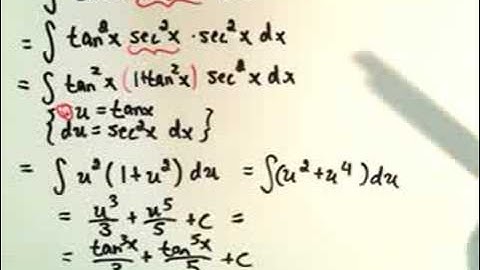 = ∫ tan²x sec²x · sec²x dx
= ∫ tan²x (1+tan²x) sec²x dx
{ u = tanx
du = sec²x dx }
= ∫ u²(1+u²) du = ∫(u²+u⁴) du
= u³/3 + u⁵/5 + C =
= tan³x/3 + tan⁵x/5 + C